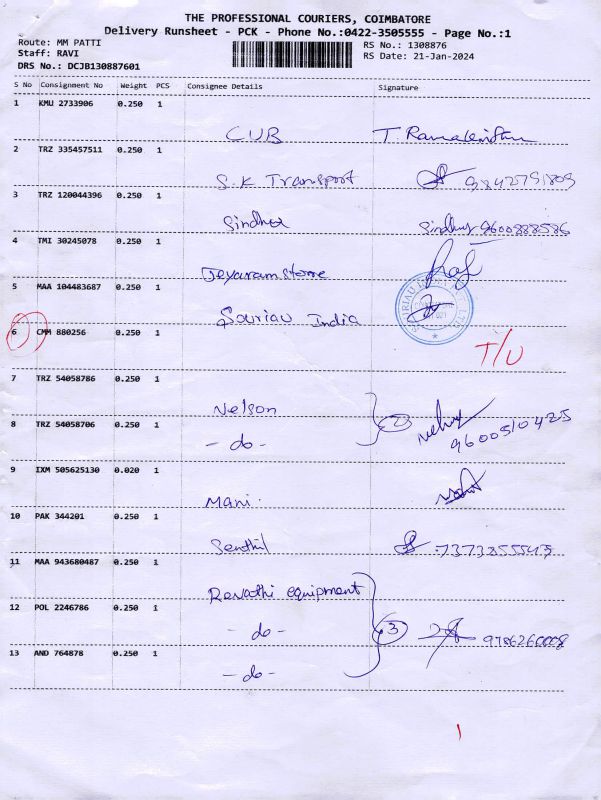 THE PROFESSIONAL COURIERS, COIMBATORE
Delivery Runsheet - PCK - Phone No.:0422-3505555 - Page No.:1
Route: MM PATTI RS No.: 1308876
Staff: RAVI RS Date: 21-Jan-2024
DRS No.: DCJB130887601
S No Consignment No Weight PCS Consignee Details Signature
1 KMU 2733906 0.250 1
CUB T.
2 TRZ 335457511 0.250 1
S.K Transport 9842751809
3 TRZ 120044396 0.250 1
Sindhu Sindhuj 9600888586
4 TMI 30245078 0.250 1
Jeyaram stome
5 MAA 104483687 0.250 1
Souriau India
6 CMM 880256 0.250 1
T/U
7 TRZ 54058786 0.250 1
Nelson
8 TRZ 54058706 0.250 1
- do - 2 9600510425
9 IXM 505625130 0.020 1
Mani
10 PAK 344201 0.250 1
Senthil 7373255543
11 MAA 943680487 0.250 1
Revathi equipment
12 POL 2246786 0.250 1
- do - 3 9786260008
13 AND 764878 0.250 1
- do -